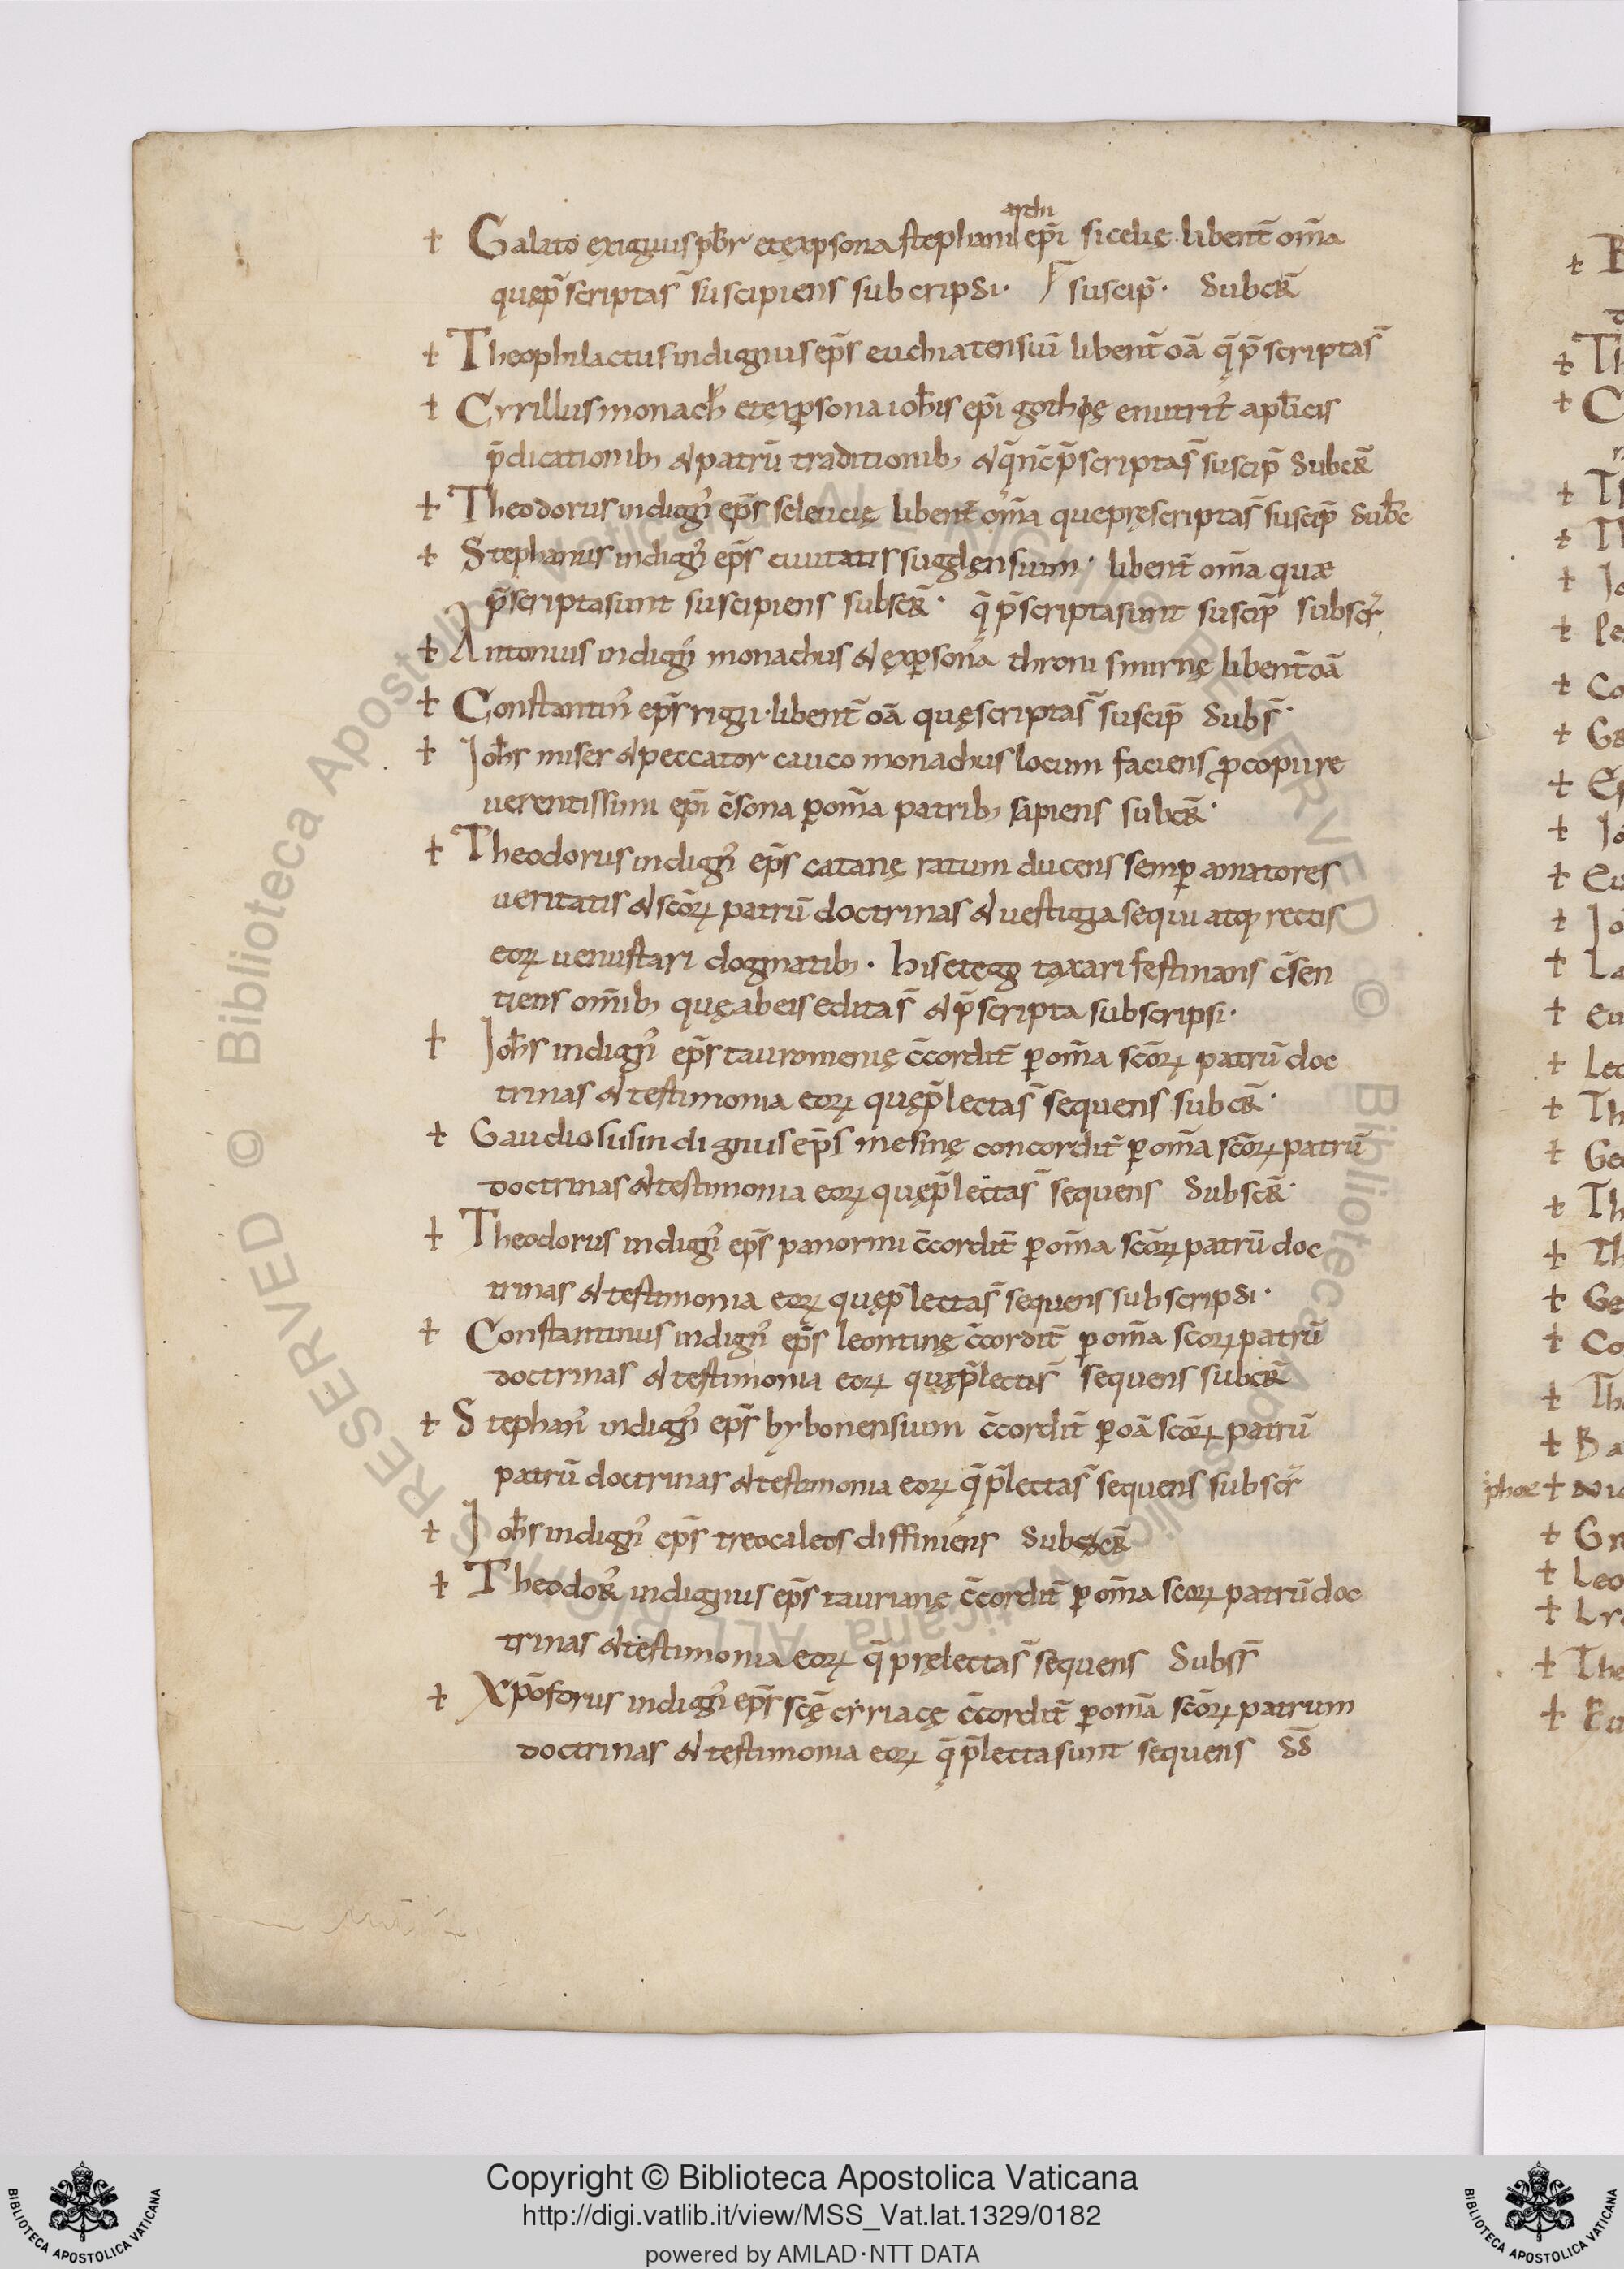 archi
+ Galato exiguus pb̄r et exp̱sona stephani ep̄i sicelię. libent̄ om̄a
quęp̄scriptas̄ suscipiens subcripsi· suscip̄· Subcr̄
+ Theophilactus indignus ep̄s euchiatensiū libent̄ oā q̄ p̄scriptas̄
+ Cyrillus monach᷒ et exp̱sona ioh̄is ep̄i gothię enutrit᷒ apl̄icis
p̄dicationib; & patrū traditionib; & q̄ nc̄ p̄scriptas̄ suscip̄ Subcr̄
+ Theodorus indign᷒ ep̄s seleucię libent̄ om̄a que pręscriptas̄ suscip̄ Sub̄c
+ Stephanus indign᷒ ep̄s ciuitatis sugdęnsium· libent̄ om̄a quæ
p̄scripta sunt suscipiens subscr̄· q̄ p̄scripta sunt suscip̄ subscr̄
+ Antonius indign᷒ monachus & exp̱sona throni smirnę libent̄ oā
+ Constantin᷒ ep̄s riggi· libent̄ oā quę scriptas̄ suscip̄ Subs̄·
+ Joh̄s miser & peccator cauco monachus locum faciens p̱copii re
uerentissimi ep̄i c̄sona p̱ om̄a patrib; sapiens subcr̄·
+ Theodorus indign᷒ ep̄s catanę ratum ducens semp̱ amatores
ueritatis & sc̄oꝝ patrū doctrinas & uestigia sequi atq; rectis
eoꝝ uenustari dogmatib;· his et ego taxari festinans c̄sen
tiens om̄ib; quę ab eis editas̄ & p̄scripta subscripsi·
+ Joh̄s indign᷒ ep̄s tauromenię c̄cordit̄ p̱ om̄a sc̄oꝝ patrū doc
trinas & testimonia eoꝝ quęp̄lectas̄ sequens subcr̄·
+ Gaudiosus indignus ep̄s mesinę concordit̄ p̱ om̄a sc̄oꝝ patrū
doctrinas & testimonia eoꝝ quęp̄lectas̄ sequens Subscr̄·
+ Theodorus indign᷒ ep̄s panormi c̄cordit̄ p̱ om̄a sc̄oꝝ patrū doc
trinas & testimonia eoꝝ quęp̄lectas̄ sequens subscripsi·
+ Constantinus indign᷒ ep̄s leontinę c̄cordit̄ p̱ om̄a scoꝝ patrū
doctrinas & testimonia eoꝝ quęp̄lectas̄ sequens subcr̄
+ Stephan᷒ indign᷒ ep̄s bybonensium c̄cordit̄ p̱ oā sc̄oꝝ patrū
patrū doctrinas & testimonia eoꝝ q̄ p̄lectas̄ sequens subscr̄
+ Joh̄s indign᷒ ep̄s treocaleos diffiniens Subscr̄
+ Theodor᷒ indignus ep̄s taurianę c̄cordit̄ p̱ om̄a scoꝝ patrū doc
trinas & testimonia eoꝝ q̄ pręlectas̄ sequens Subss̄
+ Xp̄oforus indign᷒ ep̄s sc̄ę cyriacę c̄cordit̄ p̱ om̄a sc̄oꝝ patrum
doctrinas & testimonia eoꝝ q̄ p̄lecta sunt sequens S̄S̄
Copyright © Biblioteca Apostolica Vaticana
http://digi.vatlib.it/view/MSS_Vat.lat.1329/0182
powered by AMLAD·NTT DATA
BIBLIOTECA APOSTOLICA VATICANA
BIBLIOTECA APOSTOLICA VATICANA